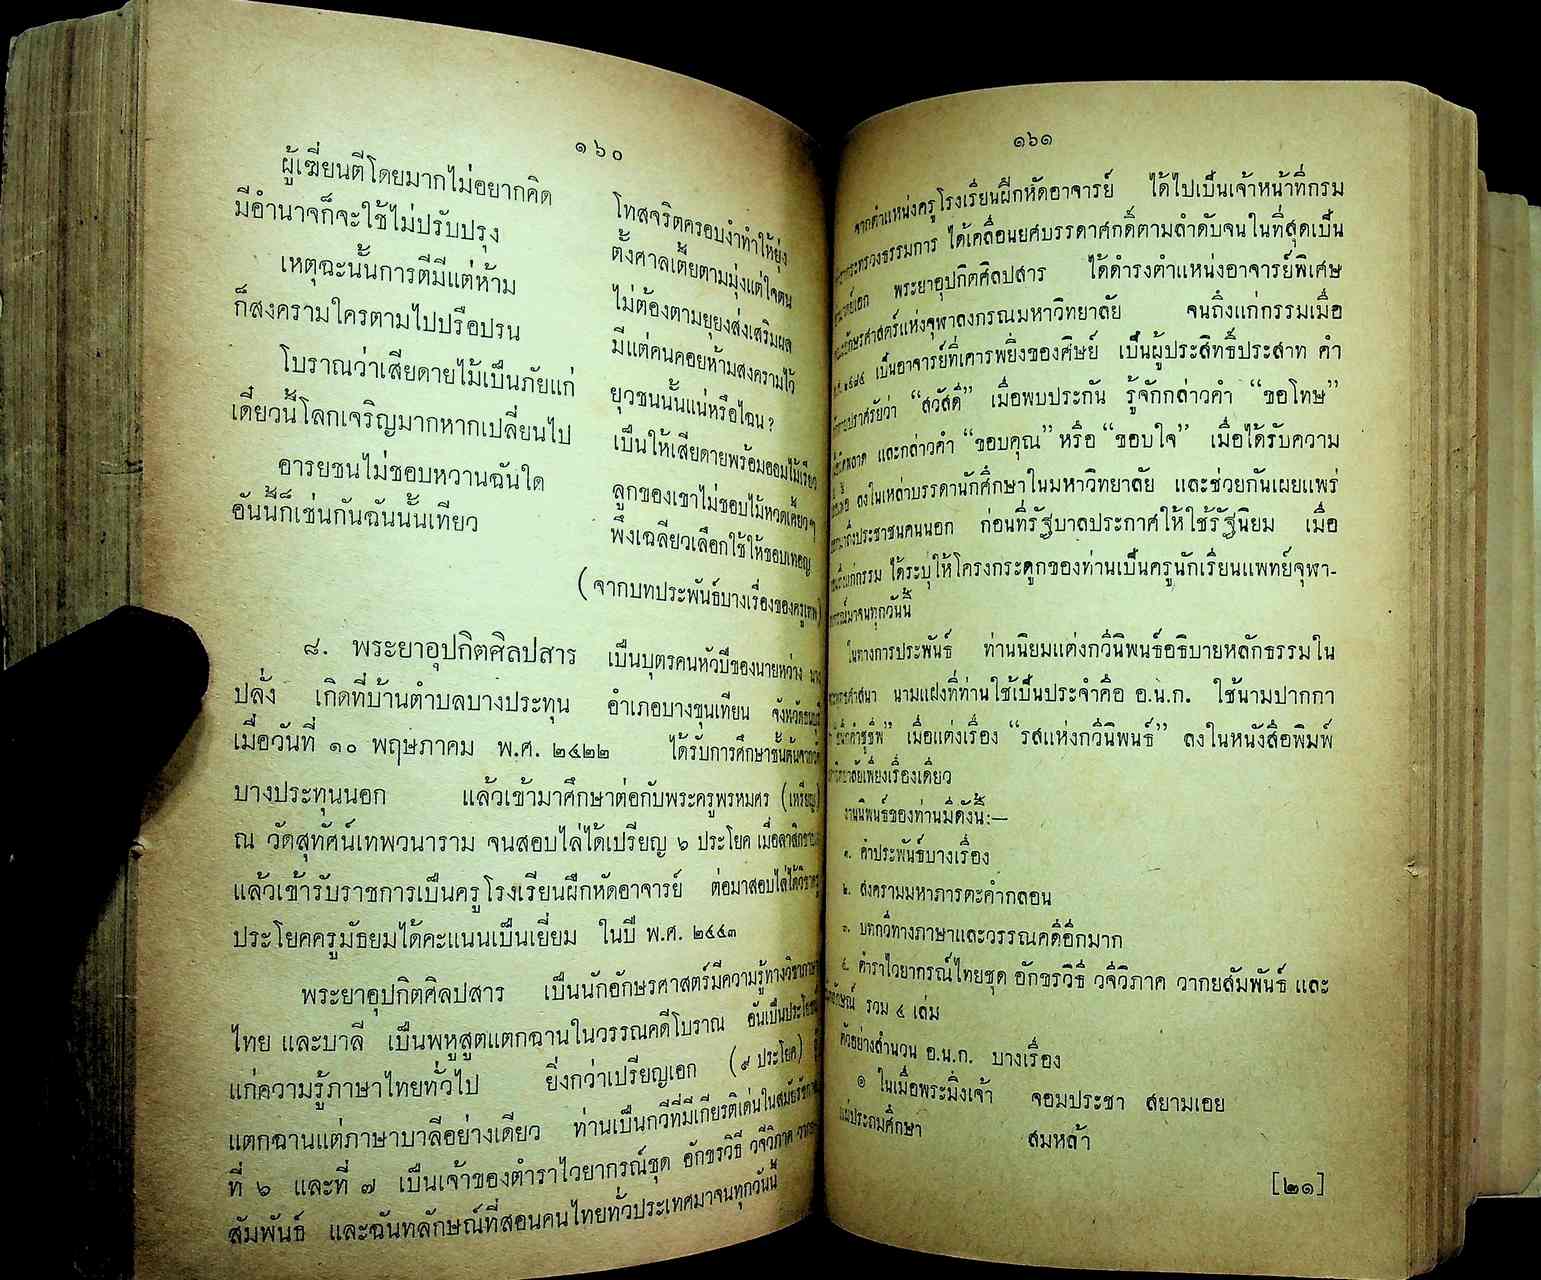 ๑๖๐
ผู้เฆี่ยนตีโดยมากไม่อยากคิด โทสจริตครอบงำทำให้ยุ่ง
มีอำนาจก็จะใช้ไม่ปรับปรุง ตั้งศาลเตี้ยตามมุ่งแต่ใจตน
เหตุฉะนั้นการตีมีแต่ห้าม ไม่ต้องตามยุยงส่งเสริมผล
ก็สงครามใครตามไปปรือปรน มีแต่คนคอยห้ามสงครามไว้
โบราณว่าเสียดายไม้เป็นภัยแก่ ยุวชนนั้นแน่หรือไฉน?
เดี๋ยวนี้โลกเจริญมากหากเปลี่ยนไป เป็นให้เสียดายพร้อมออมไม้เรียว
อารยชนไม่ชอบหวานฉันใด ลูกของเขาไม่ชอบไม้หวดเคี้ยวๆ
อันนี้ก็เช่นกันฉันนั้นเทียว พึงเฉลียวเลือกใช้ให้ชอบเทอญ
(จากบทประพันธ์บางเรื่องของครูเทพ)
๘. พระยาอุปกิตศิลปสาร เป็นบุตรคนหัวปีของนายหว่าง นาง
ปลั่ง เกิดที่บ้านตำบลบางประทุน อำเภอบางขุนเทียน จังหวัดธนบุรี
เมื่อวันที่ ๑๐ พฤษภาคม พ.ศ. ๒๔๒๒ ได้รับการศึกษาชั้นต้นจากวัด
บางประทุนนอก แล้วเข้ามาศึกษาต่อกับพระครูพรหมศร (เหรียญ)
ณ วัดสุทัศน์เทพวนาราม จนสอบไล่ได้เปรียญ ๖ ประโยค เมื่อลาสิกขาบท
แล้วเข้ารับราชการเป็นครูโรงเรียนฝึกหัดอาจารย์ ต่อมาสอบไล่ได้วิชาครู
ประโยคครูมัธยมได้คะแนนเป็นเยี่ยม ในปี พ.ศ. ๒๔๔๓
พระยาอุปกิตศิลปสาร เป็นนักอักษรศาสตร์มีความรู้ทางวิชาภาษา
ไทย และบาลี เป็นพหูสูตแตกฉานในวรรณคดีโบราณ อันเป็นประโยชน์
แก่ความรู้ภาษาไทยทั่วไป ยิ่งกว่าเปรียญเอก (๙ ประโยค)
แตกฉานแต่ภาษาบาลีอย่างเดียว ท่านเป็นกวีที่มีเกียรติเด่นในสมัยรัชกาล
ที่ ๖ และที่ ๗ เป็นเจ้าของตำราไวยากรณ์ชุด อักขรวิธี วจีวิภาค วากย
สัมพันธ์ และฉันทลักษณ์ที่สอนคนไทยทั่วประเทศมาจนทุกวันนี้
๑๖๑
จากตำแหน่งครูโรงเรียนฝึกหัดอาจารย์ ได้ไปเป็นเจ้าหน้าที่กรม
กระทรวงธรรมการ ได้เคลื่อนยศบรรดาศักดิ์ตามลำดับจนในที่สุดเป็น
พระยาอุปกิตศิลปสาร ได้ดำรงตำแหน่งอาจารย์พิเศษ
อักษรศาสตร์แห่งจุฬาลงกรณมหาวิทยาลัย จนถึงแก่กรรมเมื่อ
๒๔๘๔ เป็นอาจารย์ที่เคารพยิ่งของศิษย์ เป็นผู้ประสิทธิ์ประสาท คำ
ปราศรัยว่า “สวัสดี” เมื่อพบประกัน รู้จักกล่าวคำ “ขอโทษ”
และกล่าวคำ “ขอบคุณ” หรือ “ขอบใจ” เมื่อได้รับความ
ลงในเหล่าบรรดานักศึกษาในมหาวิทยาลัย และช่วยกันเผยแพร่
ถึงประชาชนคนนอก ก่อนที่รัฐบาลประกาศให้ใช้รัฐนิยม เมื่อ
ถึงแก่กรรม ได้ระบุให้โครงกระดูกของท่านเป็นครูนักเรียนแพทย์จุฬา-
มาจนทุกวันนี้
ในทางการประพันธ์ ท่านนิยมแต่งกวีนิพนธ์อธิบายหลักธรรมใน
ศาสนา นามแฝงที่ท่านใช้เป็นประจำคือ อ.น.ก. ใช้นามปากกา
เมื่อแต่งเรื่อง “รสแห่งกวีนิพนธ์” ลงในหนังสือพิมพ์
เพียงเรื่องเดียว
งานนิพนธ์ของท่านมีดังนี้:—
๑. คำประพันธ์บางเรื่อง
๒. สงครามมหาภารตะคำกลอน
๓. บทกวีทางภาษาและวรรณคดีอีกมาก
๔. ตำราไวยากรณ์ไทยชุด อักขรวิธี วจีวิภาค วากยสัมพันธ์ และ
รวม ๔ เล่ม
ตัวอย่างสำนวน อ.น.ก. บางเรื่อง
๑ ในเมื่อพระมิ่งเจ้า จอมประชา สยามเอย
แม่ประถมศึกษา สมหล้า
[๒๑]